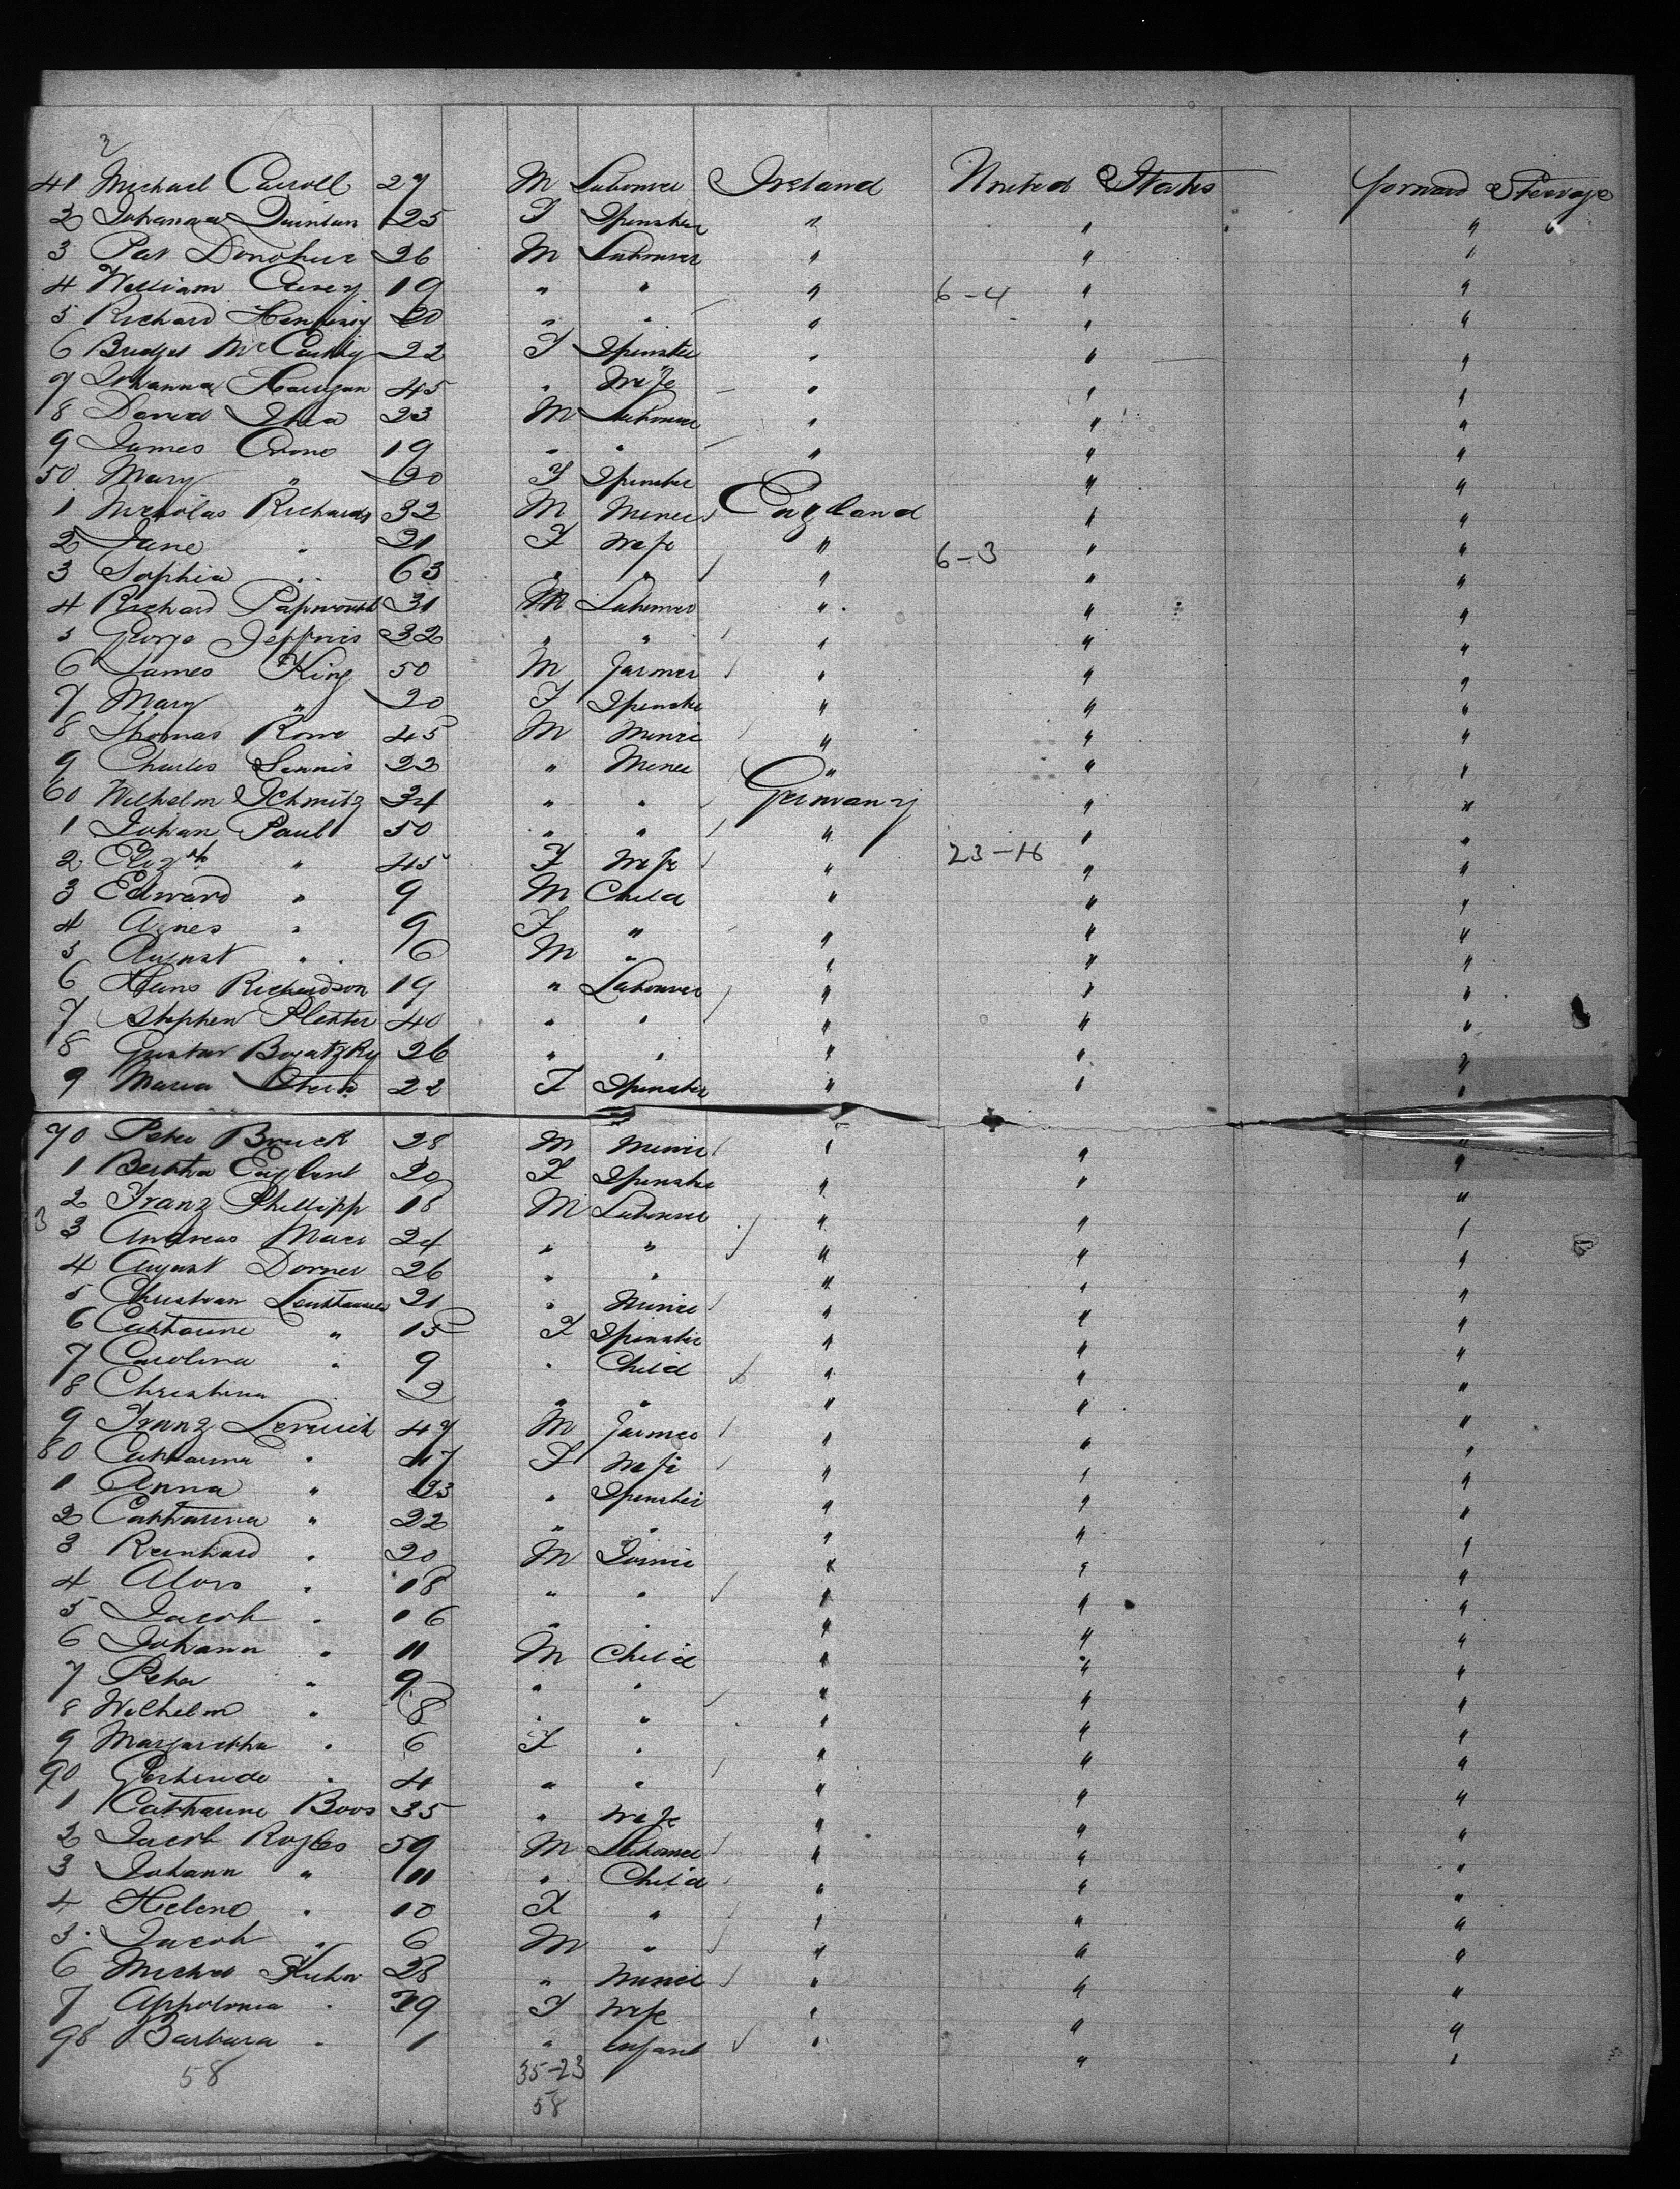 3
41 Michael Carroll 27 M Labourer Ireland United States forward Steerage
2 Johanna Quinlan 25 F Spinster " " "
3 Pat Donohue 26 M Labourer " " "
4 William 19 " " " 6-4 " "
5 Richard 20 " " " " "
6 Bridget McCarthy 22 F Spinster " " "
7 Johanna 45 " Wife " " "
8 David Shea 23 M Labourer " " "
9 James 19 " " " " "
50 Mary " 20 F Spinster " "
1 Nicolas Richards 32 M Miner England " "
2 Jane " 21 F Wife " 6-3 " "
3 Sophia " 63 " " " " "
4 Richard Papworth 31 M Labourer " " "
5 George Jeffries 32 " " " " "
6 James King 50 M Farmer " " "
7 Mary " 20 F Spinster " " "
8 Thomas Rowe 45 M Miner " " "
9 Charles 22 " Miner " " "
60 Wilhelm Schmitz 34 " " Germany " "
1 Johan Paul 50 " " " " "
2 Elizth " 45 F Wife " 23-16 " "
3 Edward " 9 M Child " " "
4 Agnes " 9 F " " " "
5 August " 6 M " " " "
6 Hans Richardson 19 " Labourer " " "
7 Stephen 40 " " " " "
8 Gustav Bogatzky 26 " " " " "
9 Maria 22 F Spinster " " "
70 Peter Bruck 28 M Miner " " "
1 Bertha 20 F Spinster " " "
2 Franz Phillipp 18 M Labourer " " "
3 Andreas 24 " " " " "
4 August Dorner 26 " " " " "
5 Christian 21 " Miner " " "
6 Catharine " 15 F Spinster " " "
7 Carolina " 9 " Child " " "
8 Christina " 2 " " " " "
9 Franz 47 M Farmer " " "
80 Catharina " 47 F Wife " " "
1 Anna " 23 " Spinster " " "
2 Catharina " 22 " " " " "
3 Reinhard " 20 M " " "
4 Alois " 18 " " " " "
5 Jacob " 16 " " " " "
6 Johann " 11 M Child " " "
7 Peter " 9 " " " " "
8 Wilhelm " 8 " " " " "
9 Margaretha " 6 F " " " "
90 Gertrude " 4 " " " " "
1 Catharine Boos 35 " Wife " " "
2 Jacob 59 M Labourer " " "
3 Johann " 11 " Child " " "
4 Helene " 10 F " " " "
5 Jacob " 6 M " " " "
6 Michel Kuhn 28 " Miner " " "
7 Appolonia " 29 F Wife " " "
98 Barbara " 1 " Infant " " "
58 35-23
58